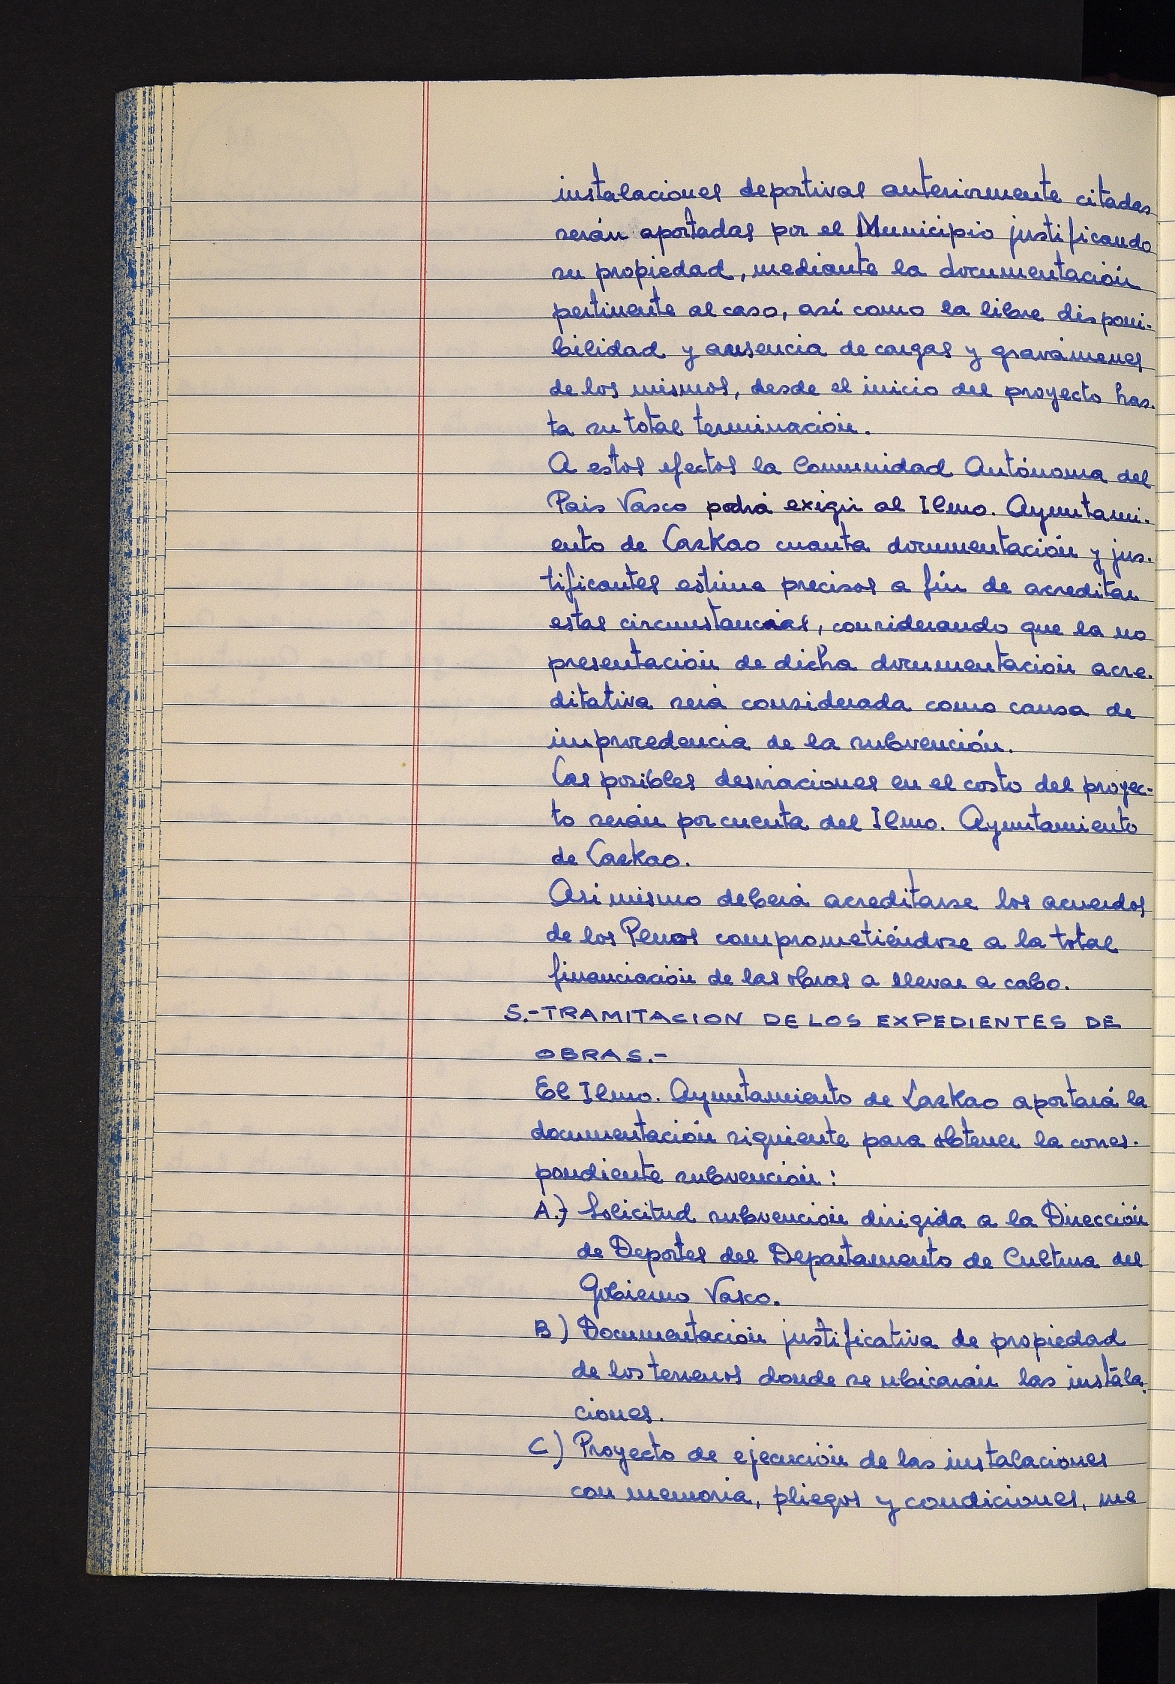 instalaciones deportivas anteriormente citadas
serán aportadas por el Municipio justificando
su propiedad, mediante la documentación
pertinente al caso, así como la libre disponi-
bilidad y ausencia de cargas y gravámenes
de los mismos, desde el inicio del proyecto has-
ta su total terminación.
A estos efectos la Comunidad Autónoma del
Pais Vasco podrá exigir al Ilmo. Ayuntami-
ento de Lazkao cuanta documentación y jus-
tificantes estime precisos a fin de acreditar
estas circunstancias, considerando que la no
presentación de dicha documentación acre-
ditativa será considerada como causa de
improcedencia de la subvención.
Las posibles desviaciones en el costo del proyec-
to serán por cuenta del Ilmo. Ayuntamiento
de Lazkao.
Asi mismo deberá acreditarse los acuerdos
de los Plenos comprometiéndose a la total
financiación de las obras a llevar a cabo.
5.-TRAMITACION DE LOS EXPEDIENTES DE
OBRAS.-
El Ilmo. Ayuntamiento de Lazkao aportará la
documentación siguiente para obtener la corres-
pondiente subvención:
A.) Solicitud subvención dirigida a la Dirección
de Deportes del Departamento de Cultura del
Gobierno Vasco.
B) Documentación justificativa de propiedad
de los terrenos donde se ubicarán las instala-
ciones.
C) Proyecto de ejecución de las instalaciones
con memoria, pliegos y condiciones, me